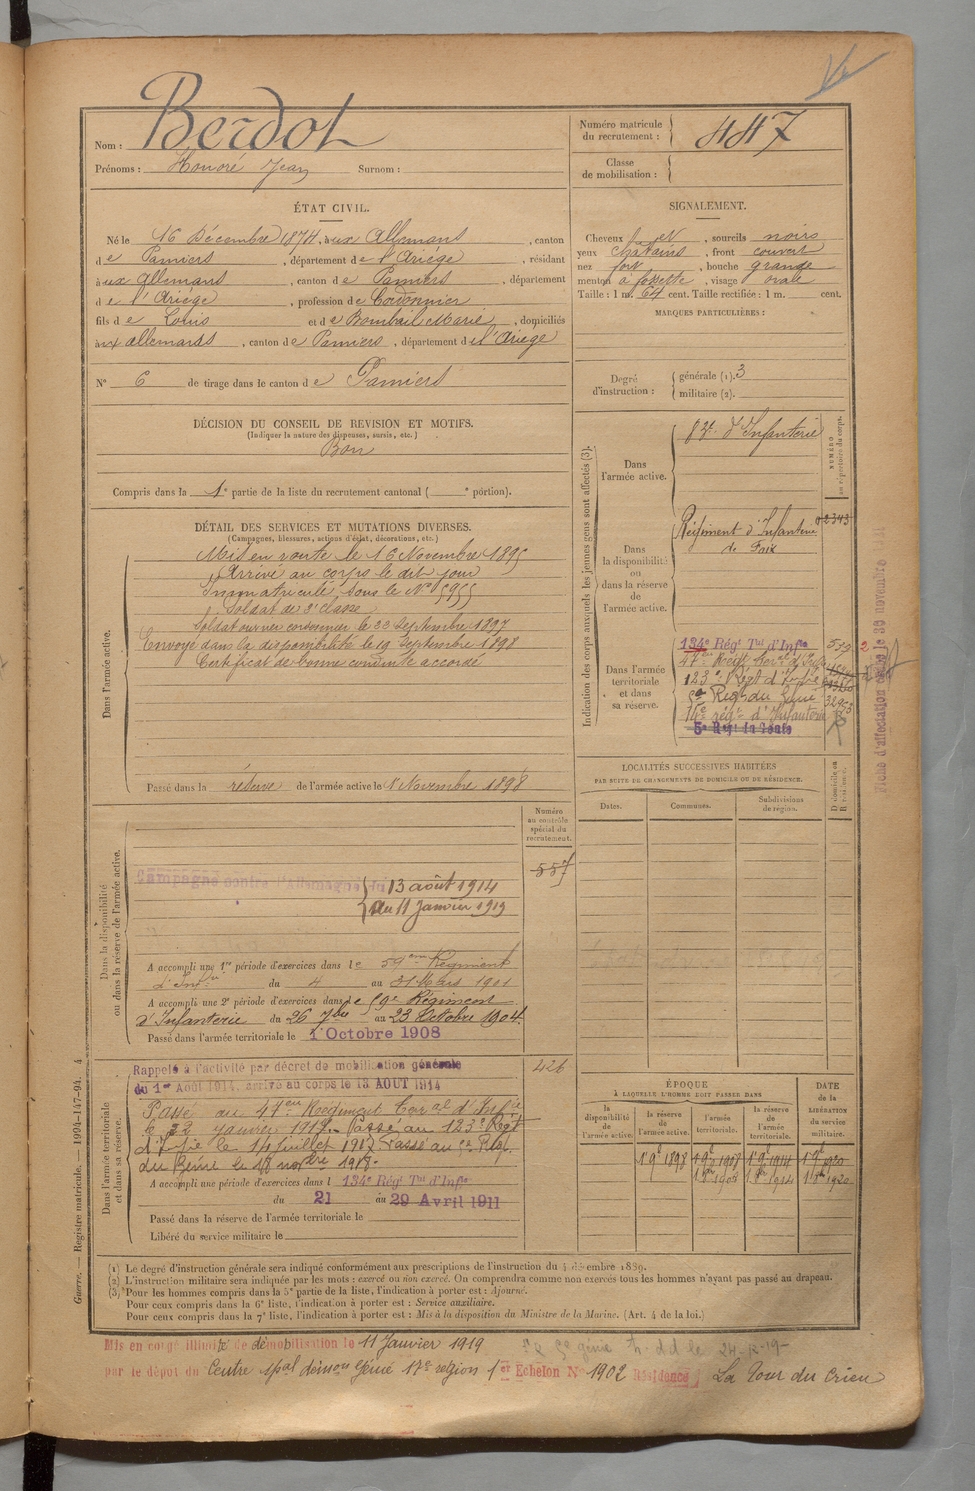 Nom : Berdot
Prénoms : Honoré Jean Surnom :
Numéro matricule du recrutement : 447
Classe de mobilisation :
ÉTAT CIVIL.
Né le 16 Décembre 1874, à ux Allemans, canton
de Pamiers, département de l'Ariège, résidant
à ux Allemans, canton de Pamiers, département
de l'Ariège, profession de Cordonnier
fils de Louis et de Bombail Marie, domiciliés
à ux allemans, canton de Pamiers, département de l'Ariège
N° 6 de tirage dans le canton de Pamiers
SIGNALEMENT.
Cheveux et, sourcils noirs
yeux châtains, front couvert
nez fort, bouche grande
menton à fossette, visage ovale
Taille : 1 m. 64 cent. Taille rectifiée : 1 m. cent.
MARQUES PARTICULIÈRES :
Degré d'instruction : générale (1). 3
militaire (2).
DÉCISION DU CONSEIL DE REVISION ET MOTIFS.
(Indiquer la nature des dispenses, sursis, etc.)
Bon
Compris dans la 1e partie de la liste du recrutement cantonal ( e portion).
DÉTAIL DES SERVICES ET MUTATIONS DIVERSES.
(Campagnes, blessures, actions d'éclat, décorations, etc.)
Dans l'armée active.
Mis en route le 16 Novembre 1895
Arrivé au corps le dit jour
Immatriculé sous le N° 5955
Soldat de 2e classe
Soldat ouvrier cordonnier le 22 Septembre 1897
Envoyé dans la disponibilité le 19 Septembre 1898
Certificat de bonne conduite accordé
Passé dans la réserve de l'armée active le 1er Novembre 1898
Indication des corps auxquels les jeunes gens sont affectés (3).
NUMÉRO au répertoire du corps.
Dans l'armée active.
d'Infanterie
Dans la disponibilité ou dans la réserve de l'armée active.
Régiment d'Infanterie
de Foix
2343
Dans l'armée territoriale et dans sa réserve.
134e Régt Tal d'Infie
123e Régt d'Infie
Régt du Génie
14e régt d'Infanterie
5e Régt du Génie
Fiche d'affectation 30 novembre
LOCALITÉS SUCCESSIVES HABITÉES
PAR SUITE DE CHANGEMENTS DE DOMICILE OU DE RÉSIDENCE.
Dates. Communes. Subdivisions de région. D domicile ou R résidence.
Numéro au contrôle spécial du recrutement.
557
Dans la disponibilité ou dans la réserve de l'armée active.
Campagne contre l'Allemagne du 13 août 1914
au 11 Janvier 1919
A accompli une 1re période d'exercices dans le 59eme Régiment
d'Infie du 4 au 31 Mars 1901
A accompli une 2e période d'exercices dans le 59e Régiment
d'Infanterie du 26 7bre au 23 Octobre 1904
Passé dans l'armée territoriale le 1 Octobre 1908
Dans l'armée territoriale et dans sa réserve.
426
Rappelé à l'activité par décret de mobilisation générale
du 1er Août 1914, arrivé au corps le 13 AOUT 1914
Passé au 47eme Régiment Terral d'Infie
le 22 janvier 1917. Passé au 123e Régt
d'Infie le 14 Juillet 1917. Passé au 2e Régt
du Génie le 18 novbre 1918.
A accompli une période d'exercices dans l 134e Régt Tal d'Infie
du 21 au 29 Avril 1911
Passé dans la réserve de l'armée territoriale le
Libéré du service militaire le
ÉPOQUE
À LAQUELLE L'HOMME DOIT PASSER DANS
la disponibilité de l'armée active. la réserve de l'armée active. l'armée territoriale. la réserve de l'armée territoriale.
DATE de la LIBÉRATION du service militaire.
1 9bre 1898 1 9bre 1908 1 9bre 1914 1 9bre 1920
1 8bre 1908 1 8bre 1914 1 8bre 1920
(1) Le degré d'instruction générale sera indiqué conformément aux prescriptions de l'instruction du 4 décembre 1889.
(2) L'instruction militaire sera indiquée par les mots : exercé ou non exercé. On comprendra comme non exercés tous les hommes n'ayant pas passé au drapeau.
(3) Pour les hommes compris dans la 5e partie de la liste, l'indication à porter est : Ajourné.
Pour ceux compris dans la 6e liste, l'indication à porter est : Service auxiliaire.
Pour ceux compris dans la 7e liste, l'indication à porter est : Mis à la disposition du Ministre de la Marine. (Art. 4 de la loi.)
Guerre. — Registre matricule. — 1904-147-94. 4
Mis en congé illimité de démobilisation le 11 Janvier 1919
par le dépôt du Centre spal démon Génie 17e région 1er Echelon No 1902 Résidence La Tour du Crieu